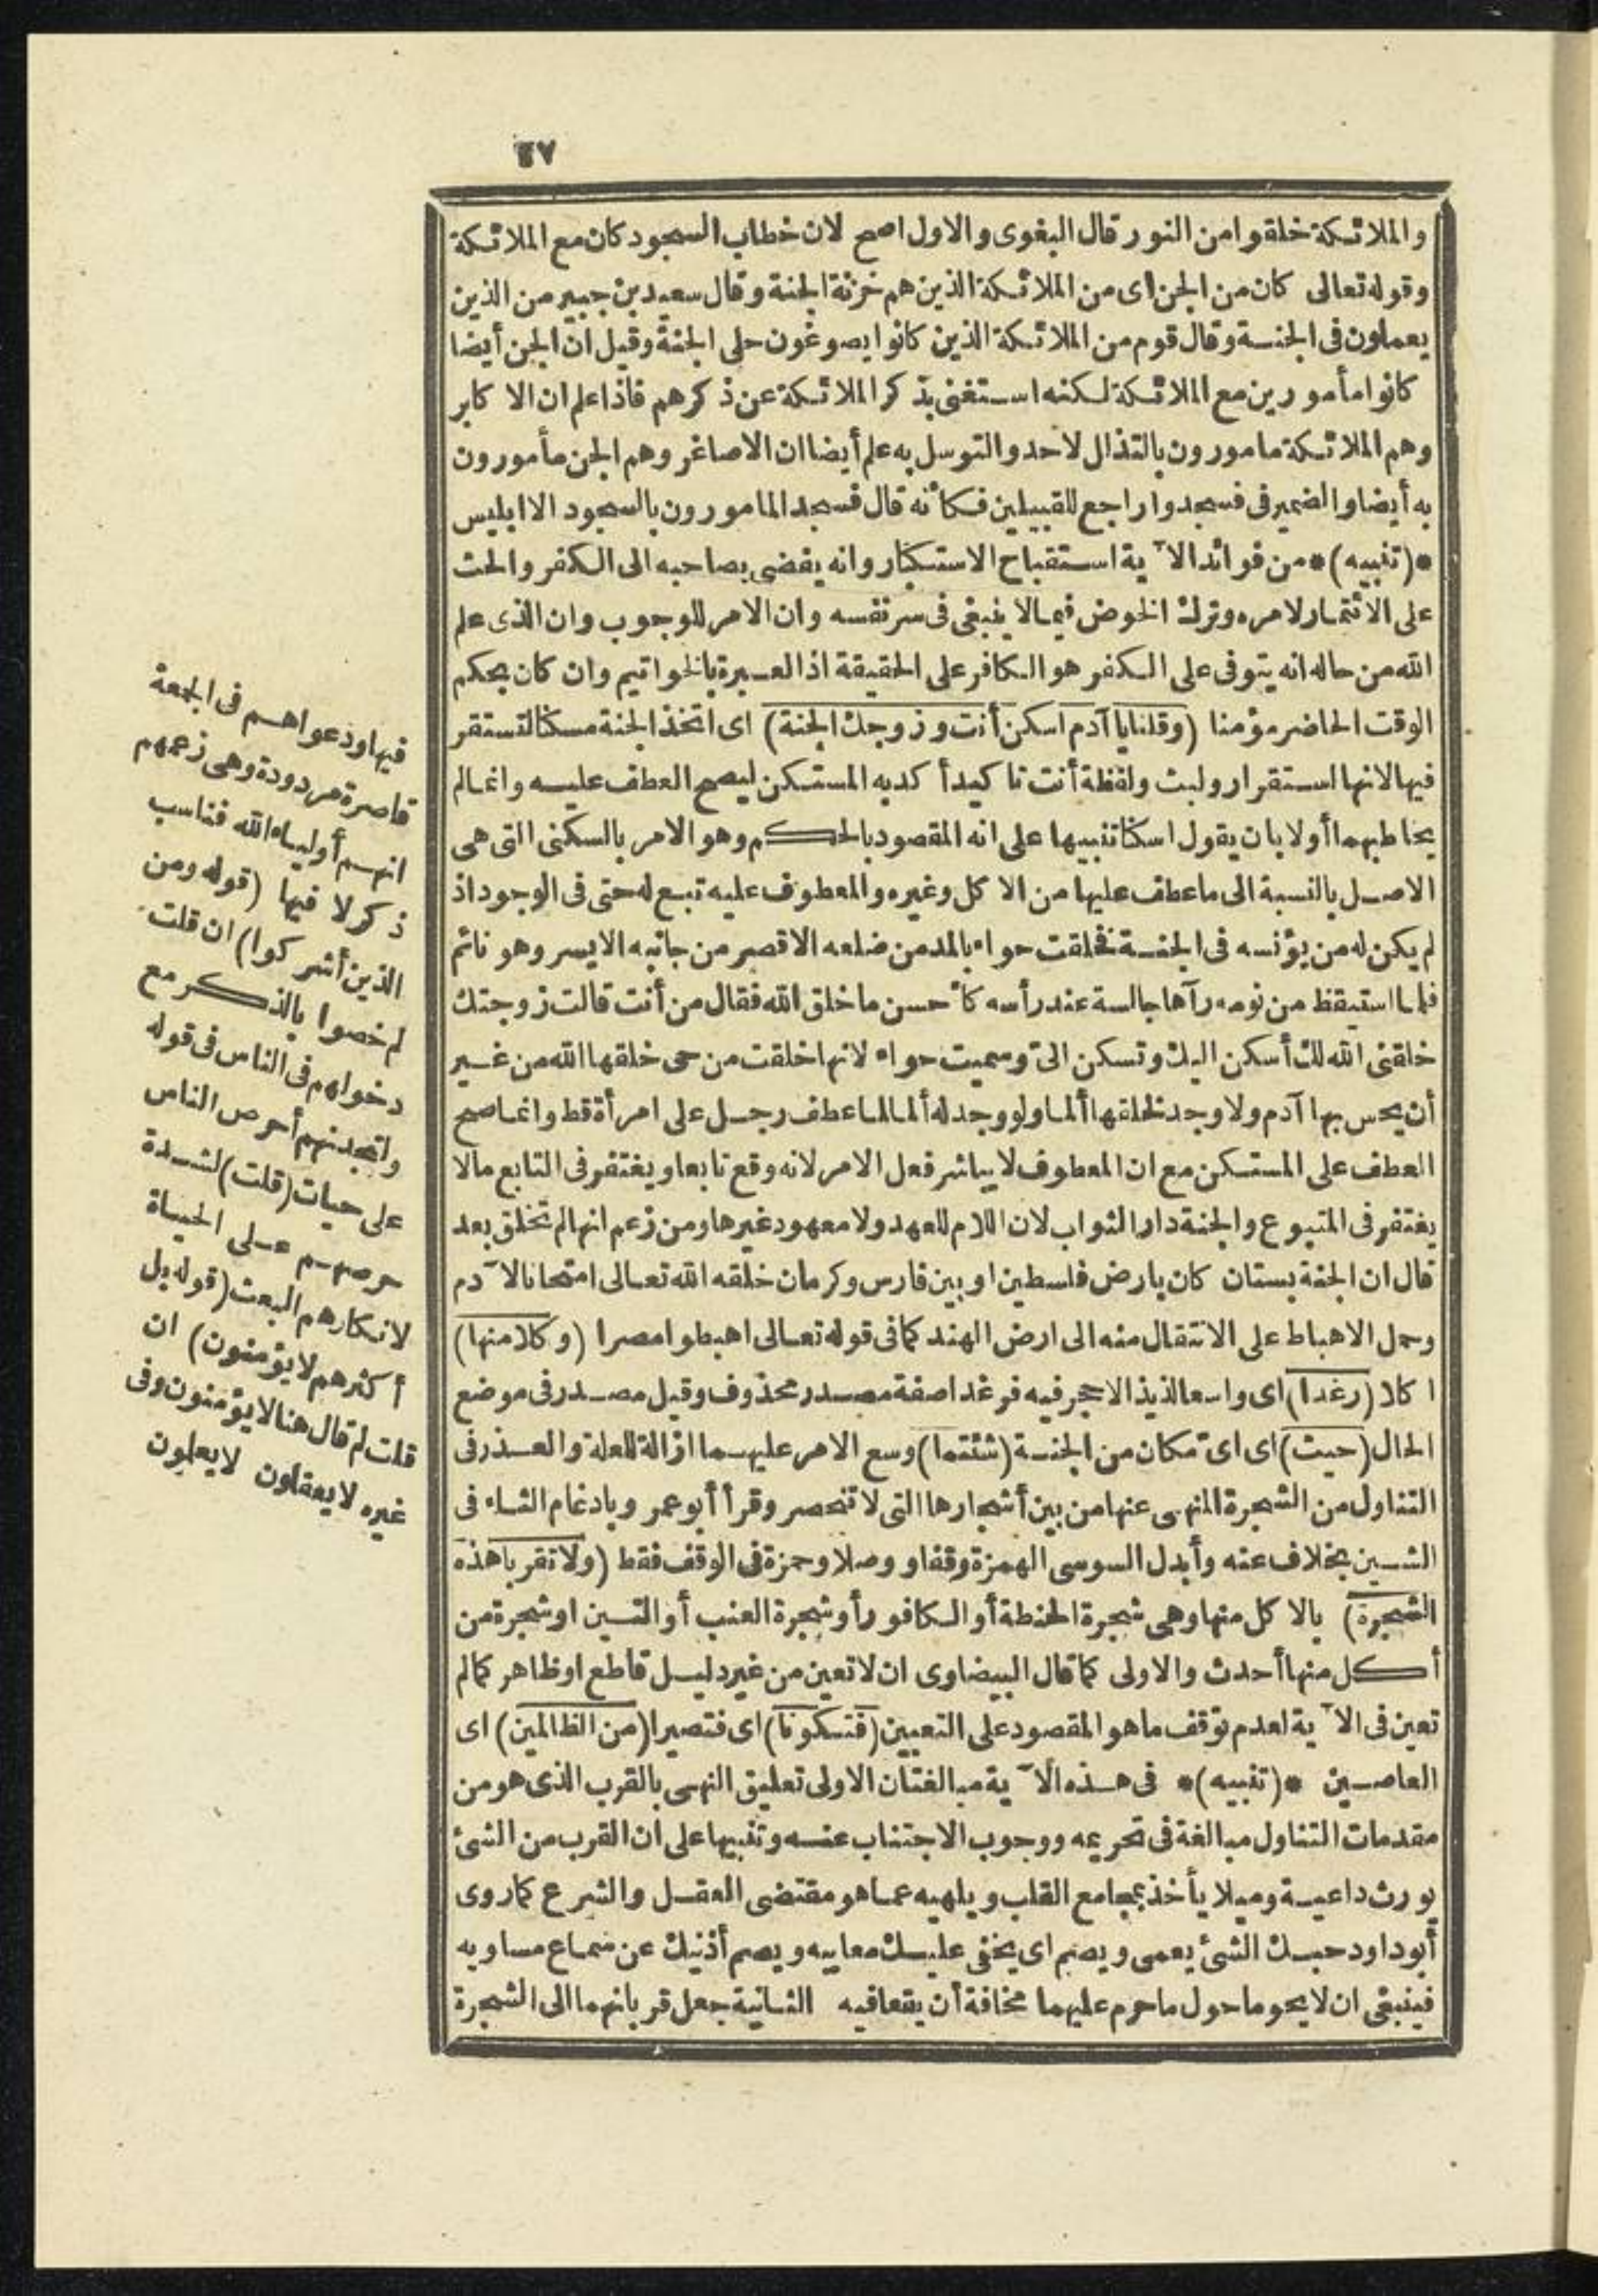 ٤٧
والملائكة خلقوا من النور قال البغوى والاول اصح لان خطاب السجود كان مع الملائكة
وقوله تعالى كان من الجن اى من الملائكة الذين هم خزنة الجنة وقال سعيد بن جبير من الذين
يعملون فى الجنة وقال قوم من الملائكة الذين كانوا يصوغون حلى الجنة وقيل ان الجن أيضا
كانوا مأمورين مع الملائكة لكنه استغنى بذكر الملائكة عن ذكرهم فاذا علم ان الاكابر
وهم الملائكة مامورون بالتذلل لاحد والتوسل به علم أيضا ان الاصاغر وهم الجن مأمورون
به أيضا والضمير فى فسجدوا راجع للقبيلين فكأنه قال فسجد المامورون بالسجود الا ابليس
*(تنبيه)* من فوائد الآية استقباح الاستكبار وانه يفضى بصاحبه الى الكفر والحث
على الائتمار لامره وترك الخوض فيما لا ينبغى فى سر نفسه وان الامر للوجوب وان الذى علم
الله من حاله انه يتوفى على الكفر هو الكافر على الحقيقة اذ العبرة بالخواتيم وان كان بحكم
الوقت الحاضر مؤمنا (وقلنا يا آدم اسكن أنت وزوجك الجنة) اى اتخذ الجنة مسكنا لتستقر
فيها لانها استقرار ولبث ولفظة أنت تاكيد أكد به المستكن ليصح العطف عليه وانما لم
يخاطبهما أولا بان يقول اسكنا تنبيها على انه المقصود بالحكم وهو الامر بالسكنى التى هى
الاصل بالنسبة الى ما عطف عليها من الاكل وغيره والمعطوف عليه تبع له حتى فى الوجود اذ
لم يكن له من يؤنسه فى الجنة فخلقت حواء بالمد من ضلعه الاقصر من جانبه الايسر وهو نائم
فلما استيقظ من نومه رآها جالسة عند رأسه كأحسن ما خلق الله فقال من أنت قالت زوجتك
خلقنى الله لك أسكن اليك وتسكن الىّ وسميت حواء لانها خلقت من حى خلقها الله من غير
أن يحس بها آدم ولا وجد لخلقها ألما ولو وجد له ألما لما عطف رجل على امرأة قط وانما صح
العطف على المستكن مع ان المعطوف لا يباشر فعل الامر لانه وقع تابعا ويغتفر فى التابع مالا
يغتفر فى المتبوع والجنة دار الثواب لان اللام للعهد ولا معهود غيرها ومن زعم انها لم تخلق بعد
قال ان الجنة بستان كان بارض فلسطين او بين فارس وكرمان خلقه الله تعالى امتحانا لآدم
وحمل الاهباط على الانتقال منه الى ارض الهند كما فى قوله تعالى اهبطوا مصرا (وكلا منها)
اكلا (رغدا) اى واسعا لذيذا لا حجر فيه فرغدا صفة مصدر محذوف وقيل مصدر فى موضع
الحال (حيث) اى اىّ مكان من الجنة (شئتما) وسع الامر عليهما ازالة للعلة والعذر فى
التناول من الشجرة المنهى عنها من بين أشجارها التى لا تنحصر وقرأ أبو عمرو بادغام الثاء فى
الشين بخلاف عنه وأبدل السوسى الهمزة وقفا ووصلا وحمزة فى الوقف فقط (ولا تقربا هذه
الشجرة) بالاكل منها وهى شجرة الحنطة أو الكافور أو شجرة العنب أو التين او شجرة من
أكل منها أحدث والاولى كما قال البيضاوى ان لا تعين من غير دليل قاطع او ظاهر كما لم
تعين فى الآية لعدم توقف ما هو المقصود على التعيين (فتكونا) اى فتصيرا (من الظالمين) اى
العاصين *(تنبيه)* فى هذه الآية مبالغتان الاولى تعليق النهى بالقرب الذى هو من
مقدمات التناول مبالغة فى تحريمه ووجوب الاجتناب عنه وتنبيها على ان القرب من الشئ
يورث داعية وميلا يأخذ بمجامع القلب ويلهيه عما هو مقتضى العقل والشرع كما روى
أبوداود حبك الشئ يعمى ويصم اى يخفى عليك معايبه ويصم أذنيك عن سماع مساويه
فينبغى ان لا يحوما حول ما حرم عليهما مخافة أن يقعا فيه الثانية جعل قربانهما الى الشجرة
فيها ودعواهم فى الجمعة
قاصرة مردودة وهى زعمهم
انهم أولياء الله فناسب
ذكر لا فيها (قوله ومن
الذين أشركوا) ان قلت
لم خصوا بالذكر مع
دخولهم فى الناس فى قوله
ولتجدنهم أحرص الناس
على حيات (قلت) لشدة
حرصهم على الحياة
لانكارهم البعث (قوله بل
أكثرهم لا يؤمنون) ان
قلت لم قال هنا لا يؤمنون وفى
غيره لا يعقلون لا يعلمون